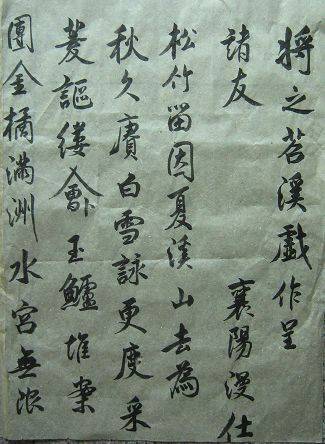 將之苕溪戲作呈
諸友 襄陽漫仕
松竹留因夏溪山去為
秋久賡白雪詠更度采
菱謳縷會玉鱸堆案
團金橘滿洲水宮無限